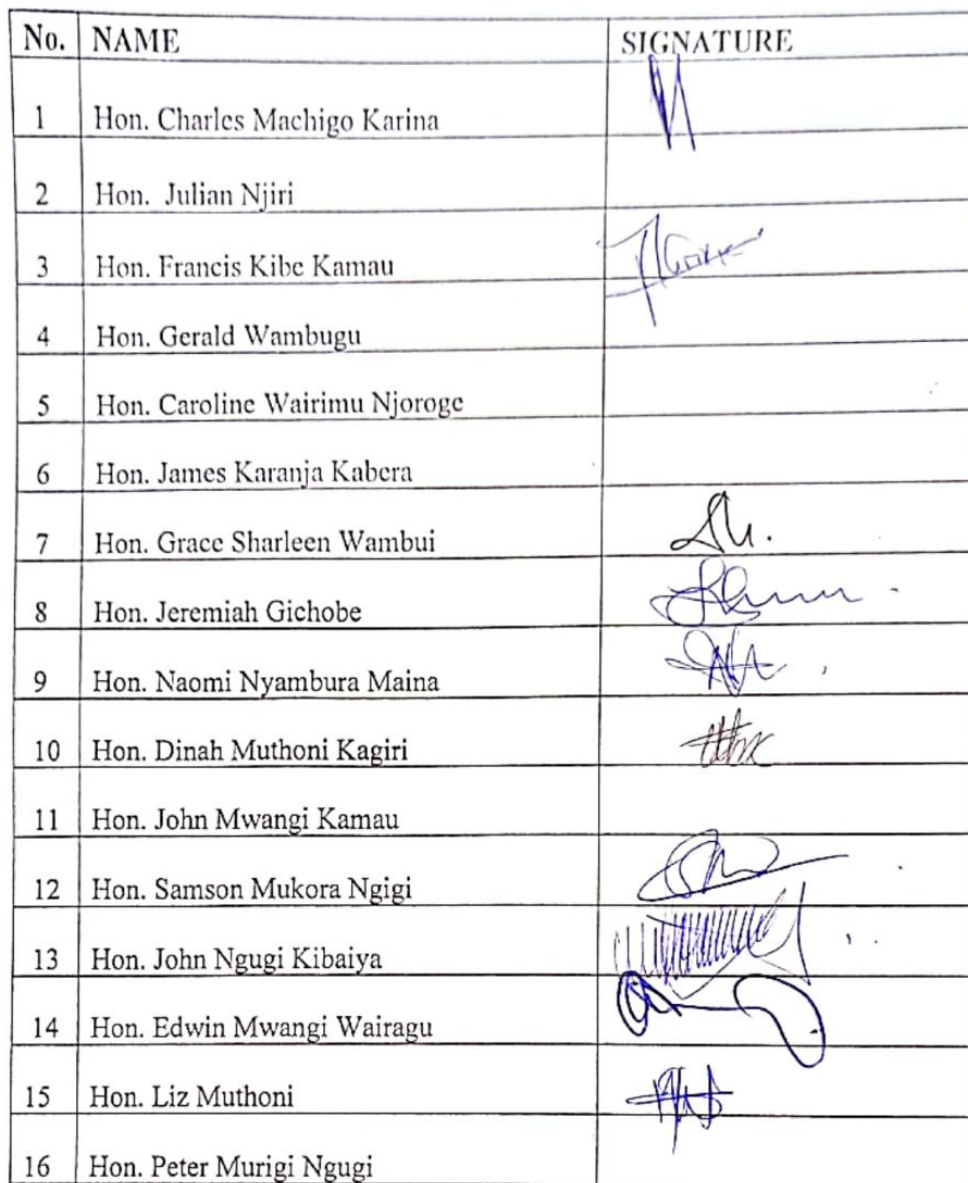 No. NAME SIGNATURE
1 Hon. Charles Machigo Karina
2 Hon. Julian Njiri
3 Hon. Francis Kibe Kamau
4 Hon. Gerald Wambugu
5 Hon. Caroline Wairimu Njoroge
6 Hon. James Karanja Kabera
7 Hon. Grace Sharleen Wambui
8 Hon. Jeremiah Gichobe
9 Hon. Naomi Nyambura Maina
10 Hon. Dinah Muthoni Kagiri
11 Hon. John Mwangi Kamau
12 Hon. Samson Mukora Ngigi
13 Hon. John Ngugi Kibaiya
14 Hon. Edwin Mwangi Wairagu
15 Hon. Liz Muthoni
16 Hon. Peter Murigi Ngugi